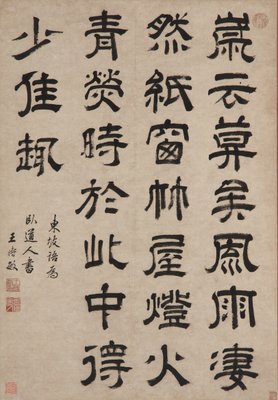 歲云莫矣風雨凄
然紙窗竹屋燈火
青熒時於此中得
少佳趣
東坡語為
臥道人書
王時敏